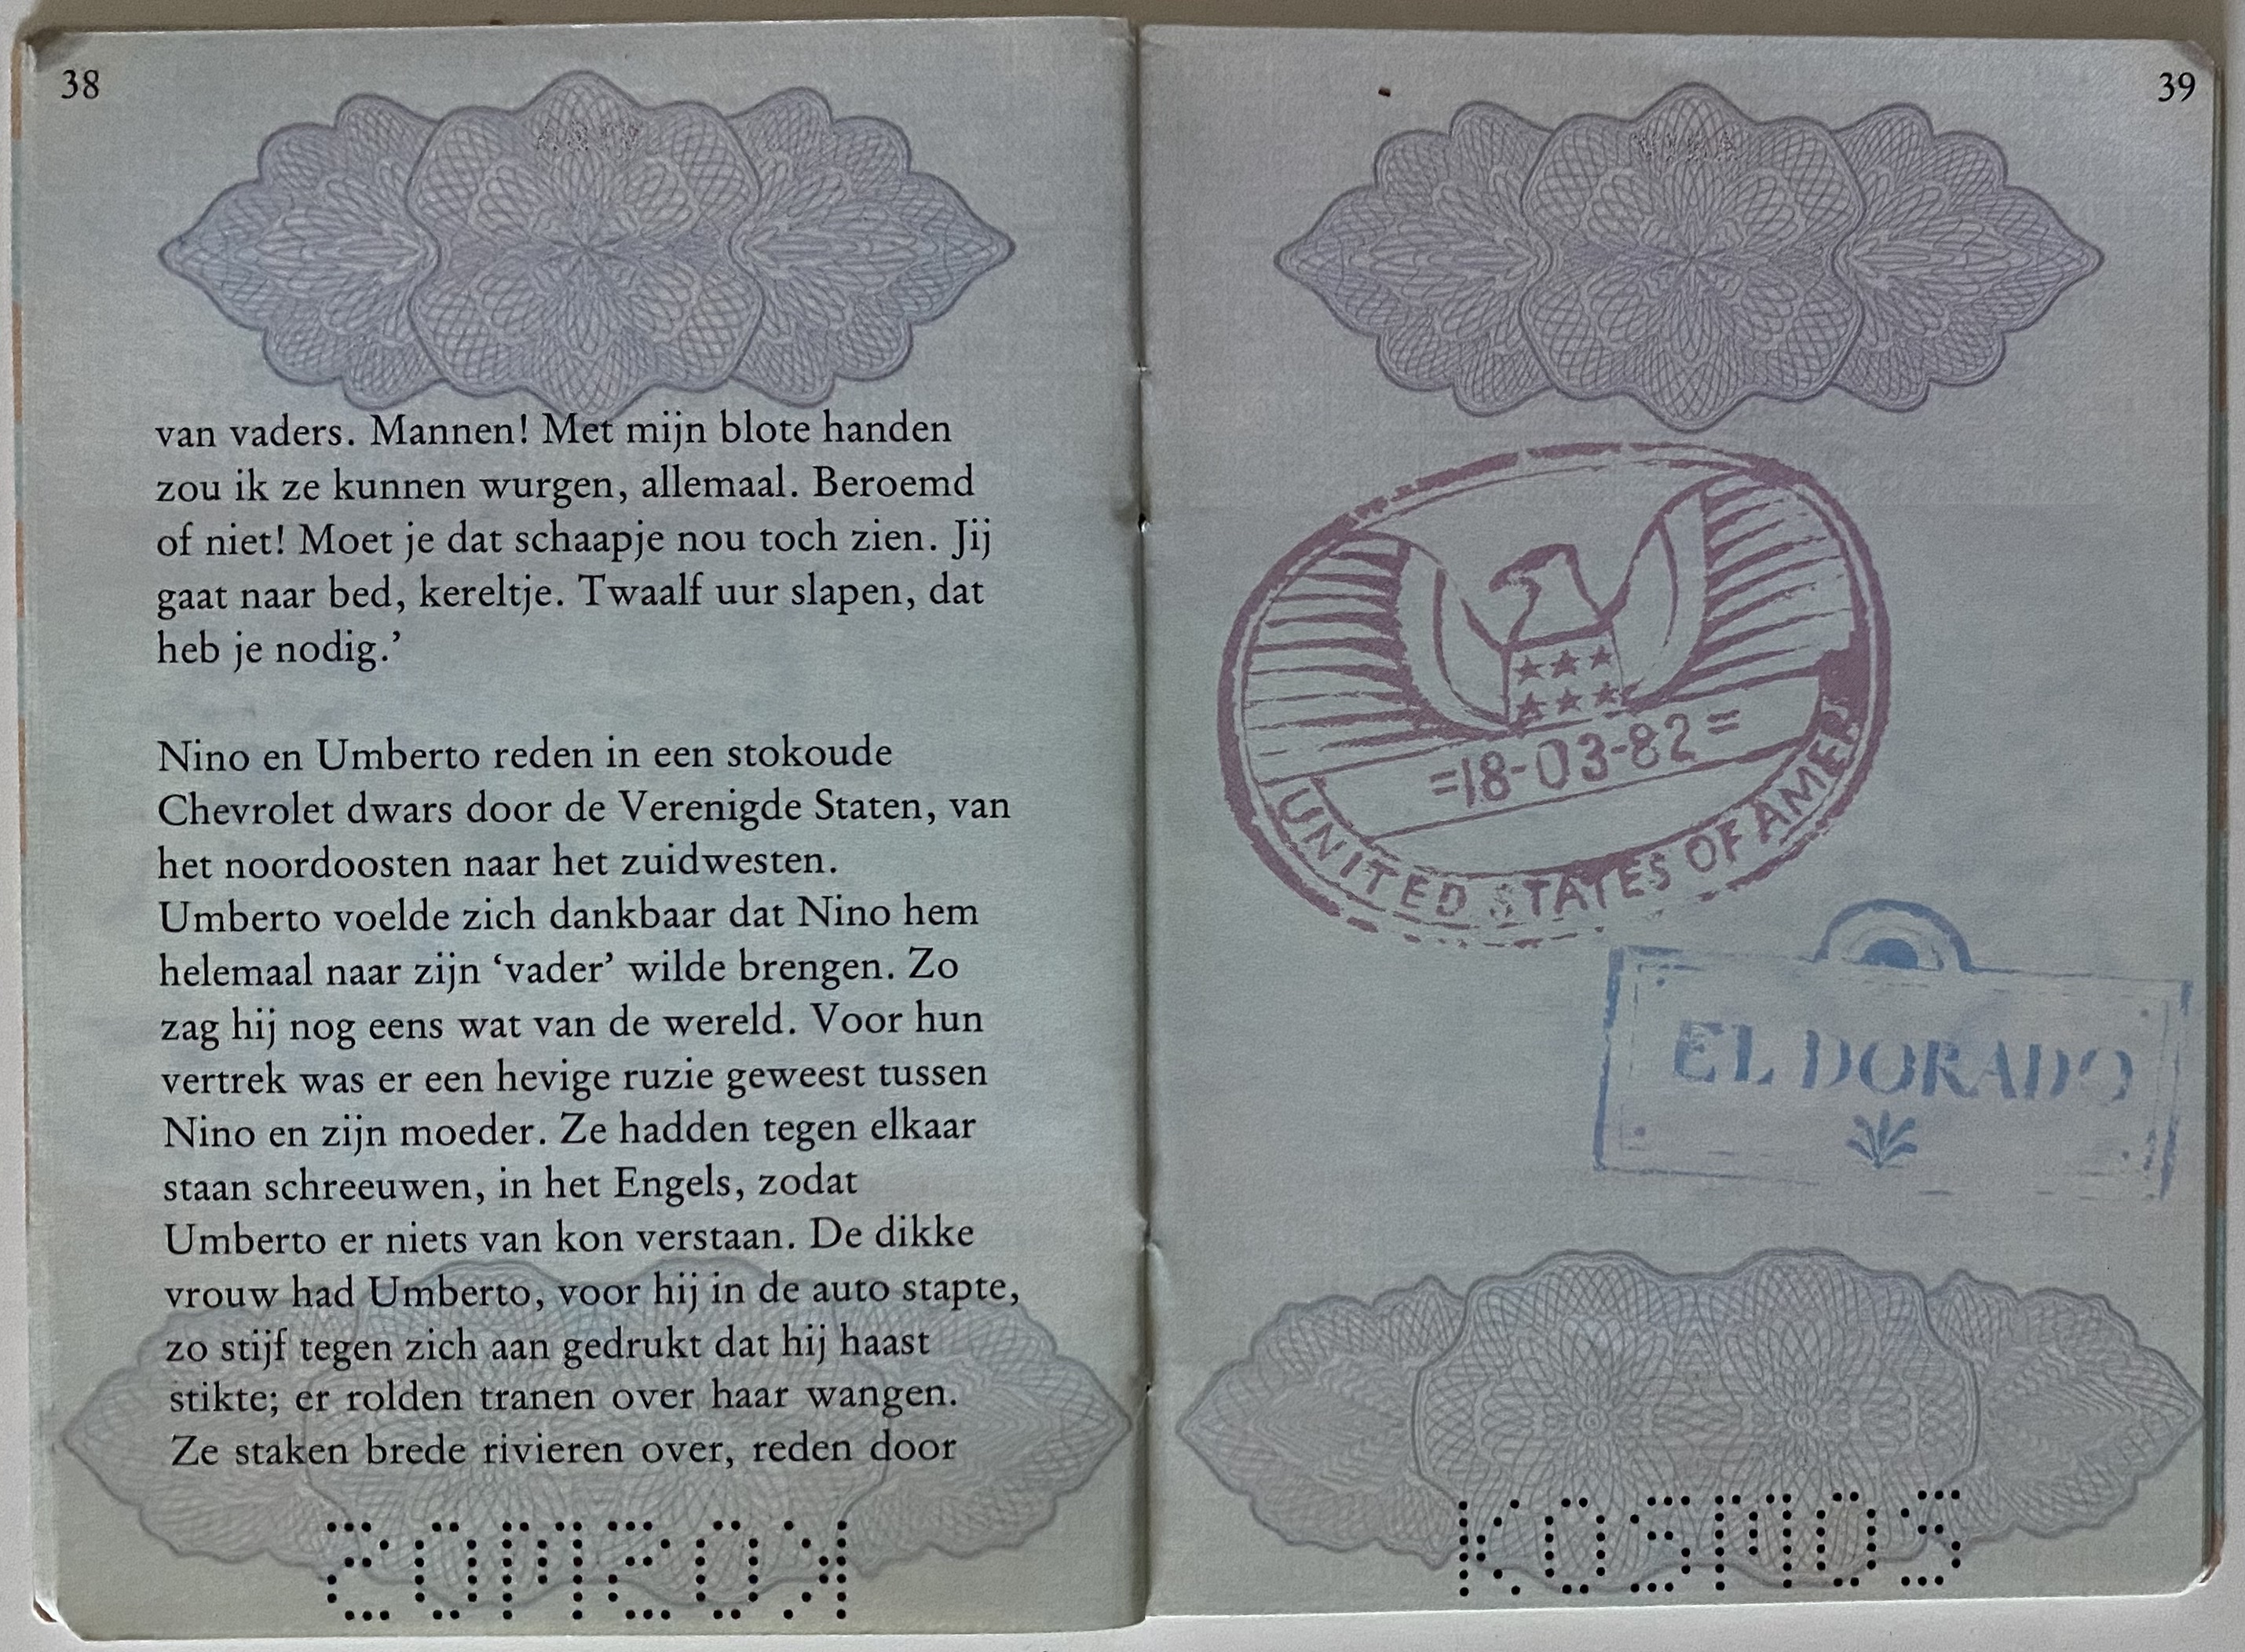 38
van vaders. Mannen! Met mijn blote handen
zou ik ze kunnen wurgen, allemaal. Beroemd
of niet! Moet je dat schaapje nou toch zien. Jij
gaat naar bed, kereltje. Twaalf uur slapen, dat
heb je nodig.’
Nino en Umberto reden in een stokoude
Chevrolet dwars door de Verenigde Staten, van
het noordoosten naar het zuidwesten.
Umberto voelde zich dankbaar dat Nino hem
helemaal naar zijn ‘vader’ wilde brengen. Zo
zag hij nog eens wat van de wereld. Voor hun
vertrek was er een hevige ruzie geweest tussen
Nino en zijn moeder. Ze hadden tegen elkaar
staan schreeuwen, in het Engels, zodat
Umberto er niets van kon verstaan. De dikke
vrouw had Umberto, voor hij in de auto stapte,
zo stijf tegen zich aan gedrukt dat hij haast
stikte; er rolden tranen over haar wangen.
Ze staken brede rivieren over, reden door
KOSMOS
39
=18-03-82=
UNITED STATES OF AMER
EL DORADO
KOSMOS